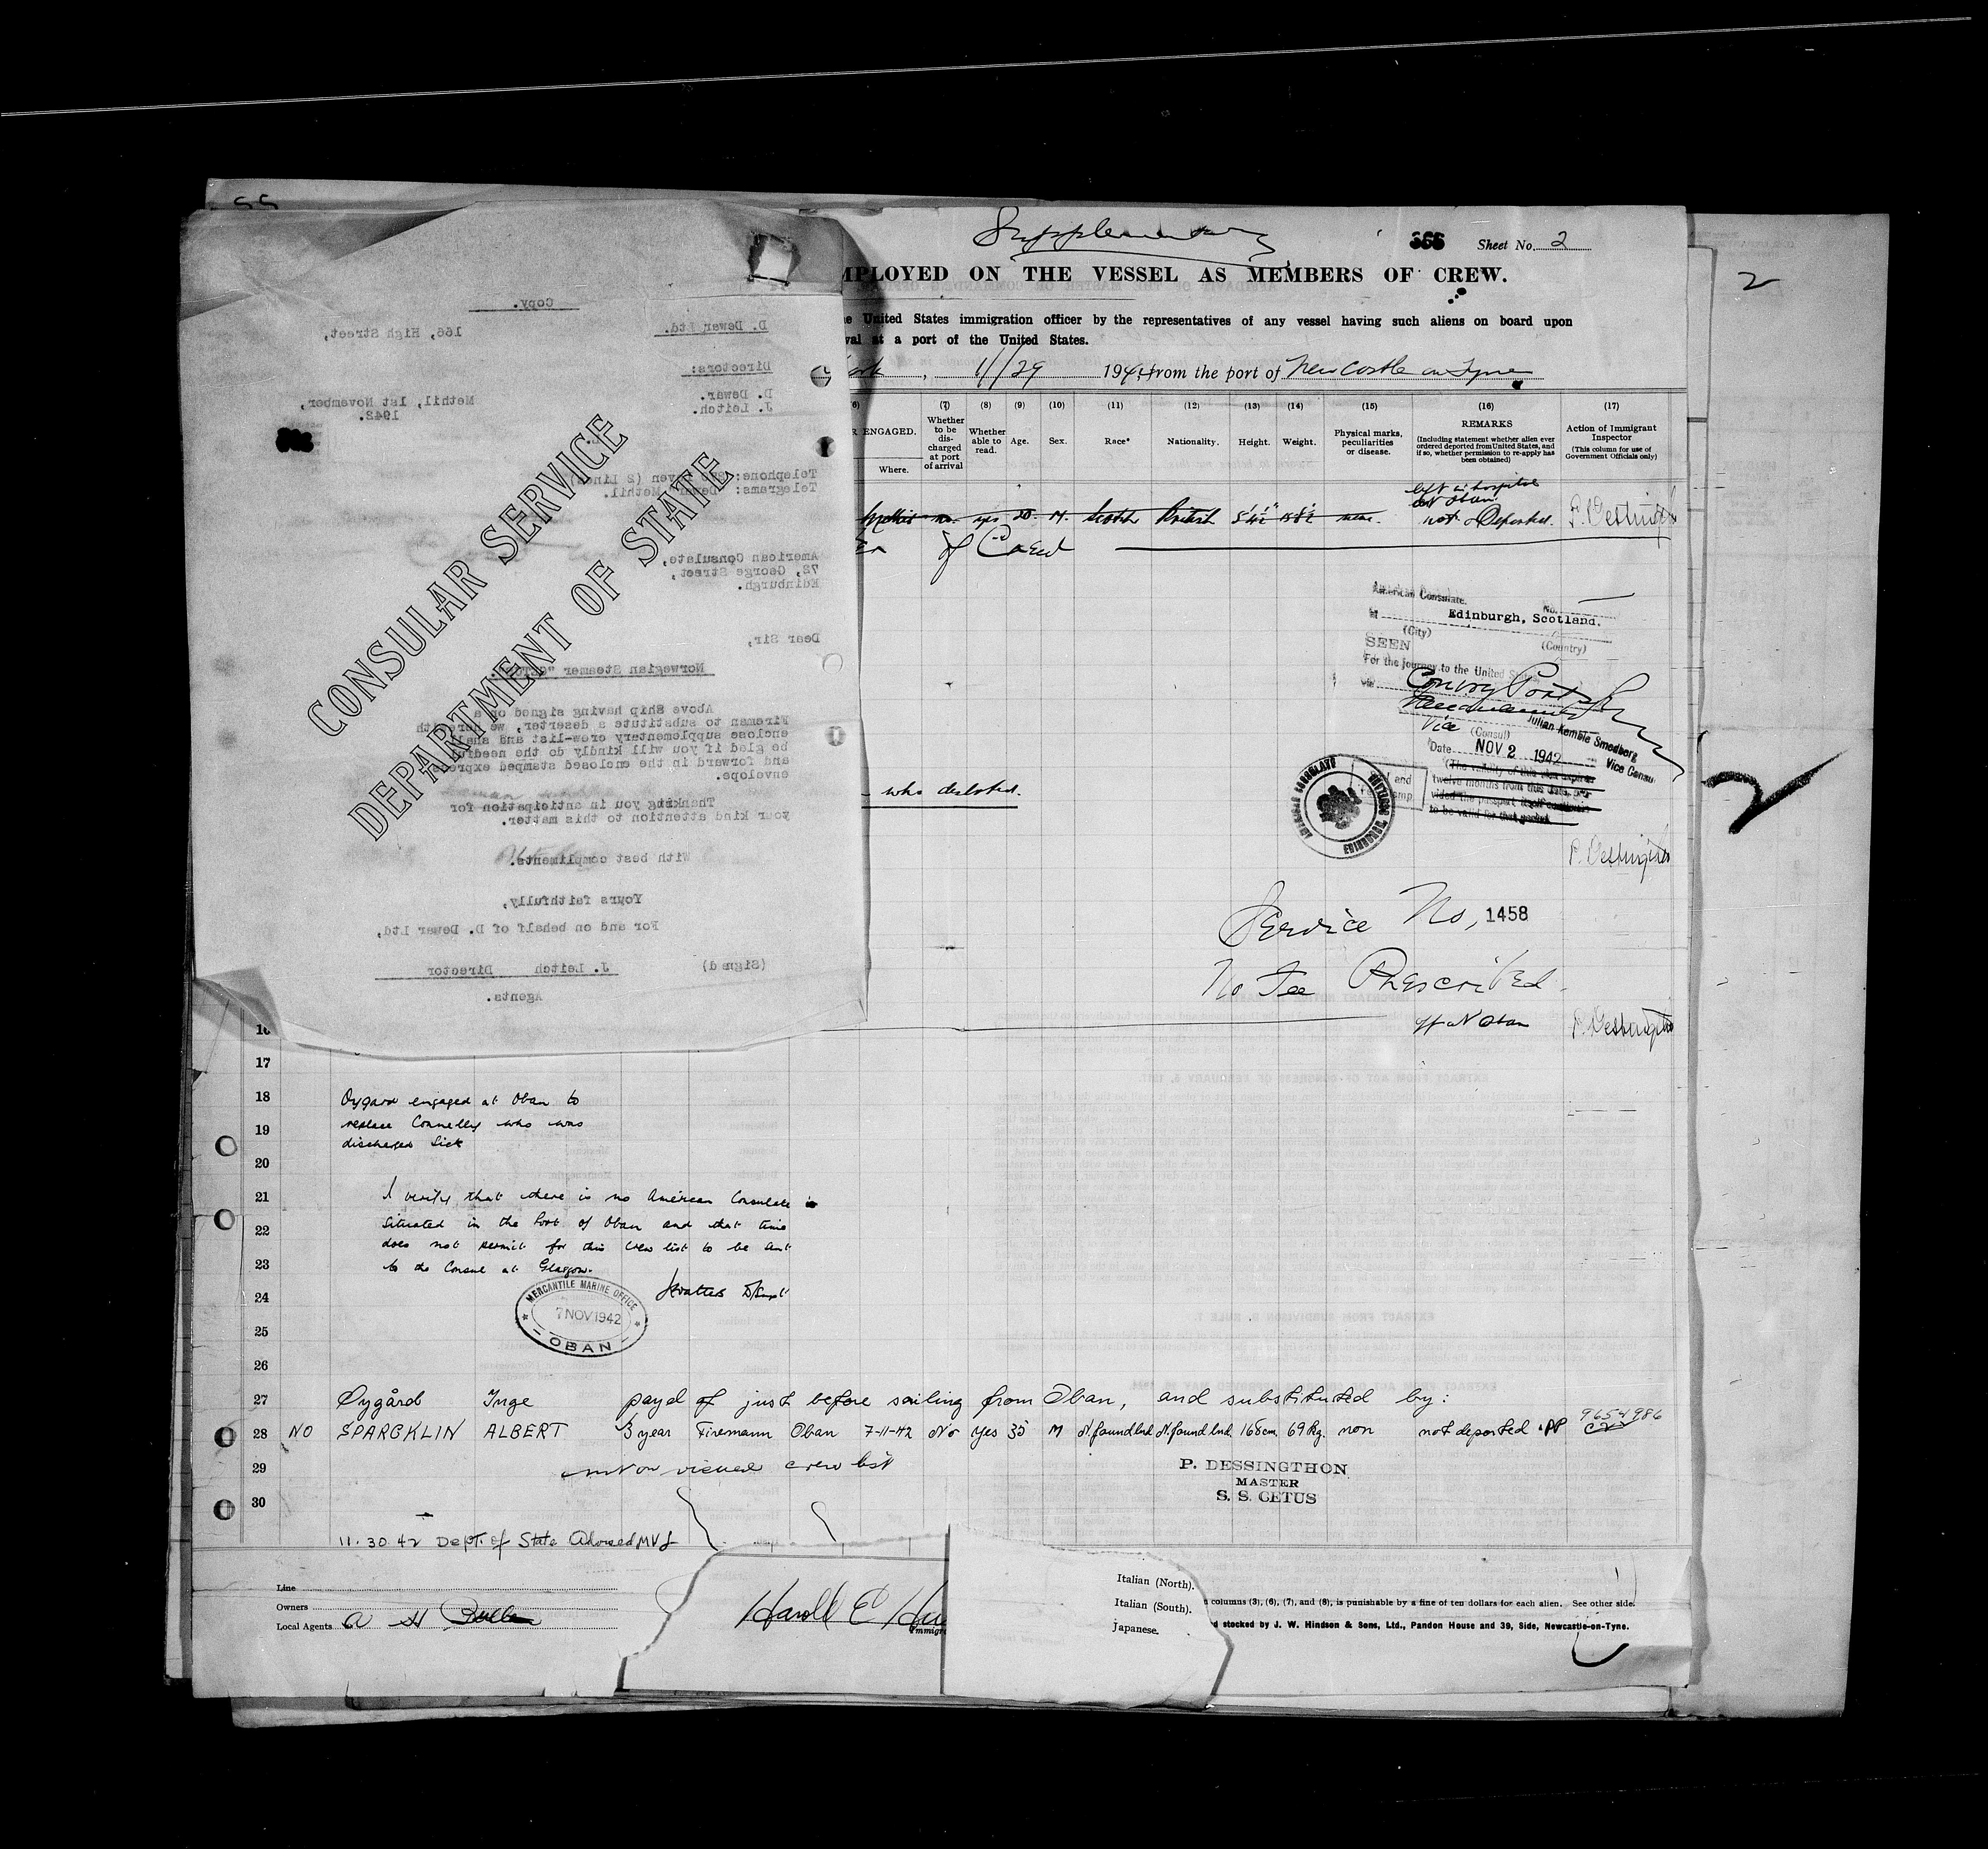 Copy.
D. Dewar Ltd. 166, High Street,
Directors:
D. Dewar.
J. Leitch.
Methil, 1st November,
1942.
Telephone: Leven (2 Lines)
Telegrams: "Dewar" Methil.
American Consulate,
72, George Street,
Edinburgh.
Dear Sir,
Norwegian Steamer
Above Ship having signed on a
Fireman to substitute a deserter, we herewith
enclose supplementary crew-list and shall
be glad if you will kindly do the needful
and forward in the enclosed stamped express
envelope.
Thanking you in anticipation for
your kind attention to this matter.
With best compliments.
Yours faithfully,
For and on behalf of D. Dewar Ltd,
(Signed) J. Leitch Director
Agents.
CONSULAR SERVICE
DEPARTMENT OF STATE
Supplementary
Sheet No. 2
MPLOYED ON THE VESSEL AS MEMBERS OF CREW.
e United States immigration officer by the representatives of any vessel having such aliens on board upon
val at a port of the United States.
ork , 11/29 194 , from the port of Newcastle on Tyne
(6) (7) (8) (9) (10) (11) (12) (13) (14) (15) (16) (17)
R ENGAGED.
Where.
Whether to be discharged at port of arrival
Whether able to read.
Age.
Sex.
Race*
Nationality.
Height.
Weight.
Physical marks, peculiarities or disease.
REMARKS
(Including statement whether alien ever ordered deported from United States, and if so, whether permission to re-apply has been obtained)
Action of Immigrant Inspector
(This column for use of Government Officials only)
left in hospital
at Oban
Methil no. yes 20. M. Scotch British none. not Deported. P. Dessingthon
American Consulate. No.
at Edinburgh, Scotland.
(City) (Country)
SEEN
For the journey to the United States
via Convoy Port
Vice (Consul)
Julian Kemble Smedberg
Vice Consul
Date NOV 2 1942
(The validity of this visa expires
twelve months from this date, pro-
vided the passport itself continues
to be valid for that period.
AMERICAN CONSULATE
EDINBURGH, SCOTLAND
who deserted.
P. Dessingthon
Service No, 1458
No Fee Prescribed.
at Oban P. Dessingthon
16
17
18 Oygard engaged at Oban to
19 replace Connelly who was
discharged sick
20
21 I verify that there is no American Consulate
22 situated in the Port of Oban and that time
does not permit for this crew list to be sent
23 to the Consul at Glasgow.
24
MERCANTILE MARINE OFFICE
7 NOV 1942
OBAN
25
26
27 Øygård Inge payd of just before sailing from Oban, and substituted by:
9654986
28 NO SPARCKLIN ALBERT 3 year Firemann Oban 7-11-42 No Yes 35 M N.foundlnd N.foundlnd. 168cm. 69 kg. non not deported
29 not on visued crew list
P. DESSINGTHON
MASTER
S. S. CETUS
30
11.30.42 Dept. of State Advised MVJ
Line
Owners
Local Agents A H Bull
Harold E
Immigr
Italian (North).
Italian (South).
Japanese.
columns (3), (6), (7), and (8), is punishable by a fine of ten dollars for each alien. See other side.
d stocked by J. W. Hindson & Sons, Ltd., Pandon House and 39, Side, Newcastle-on-Tyne.
2
2